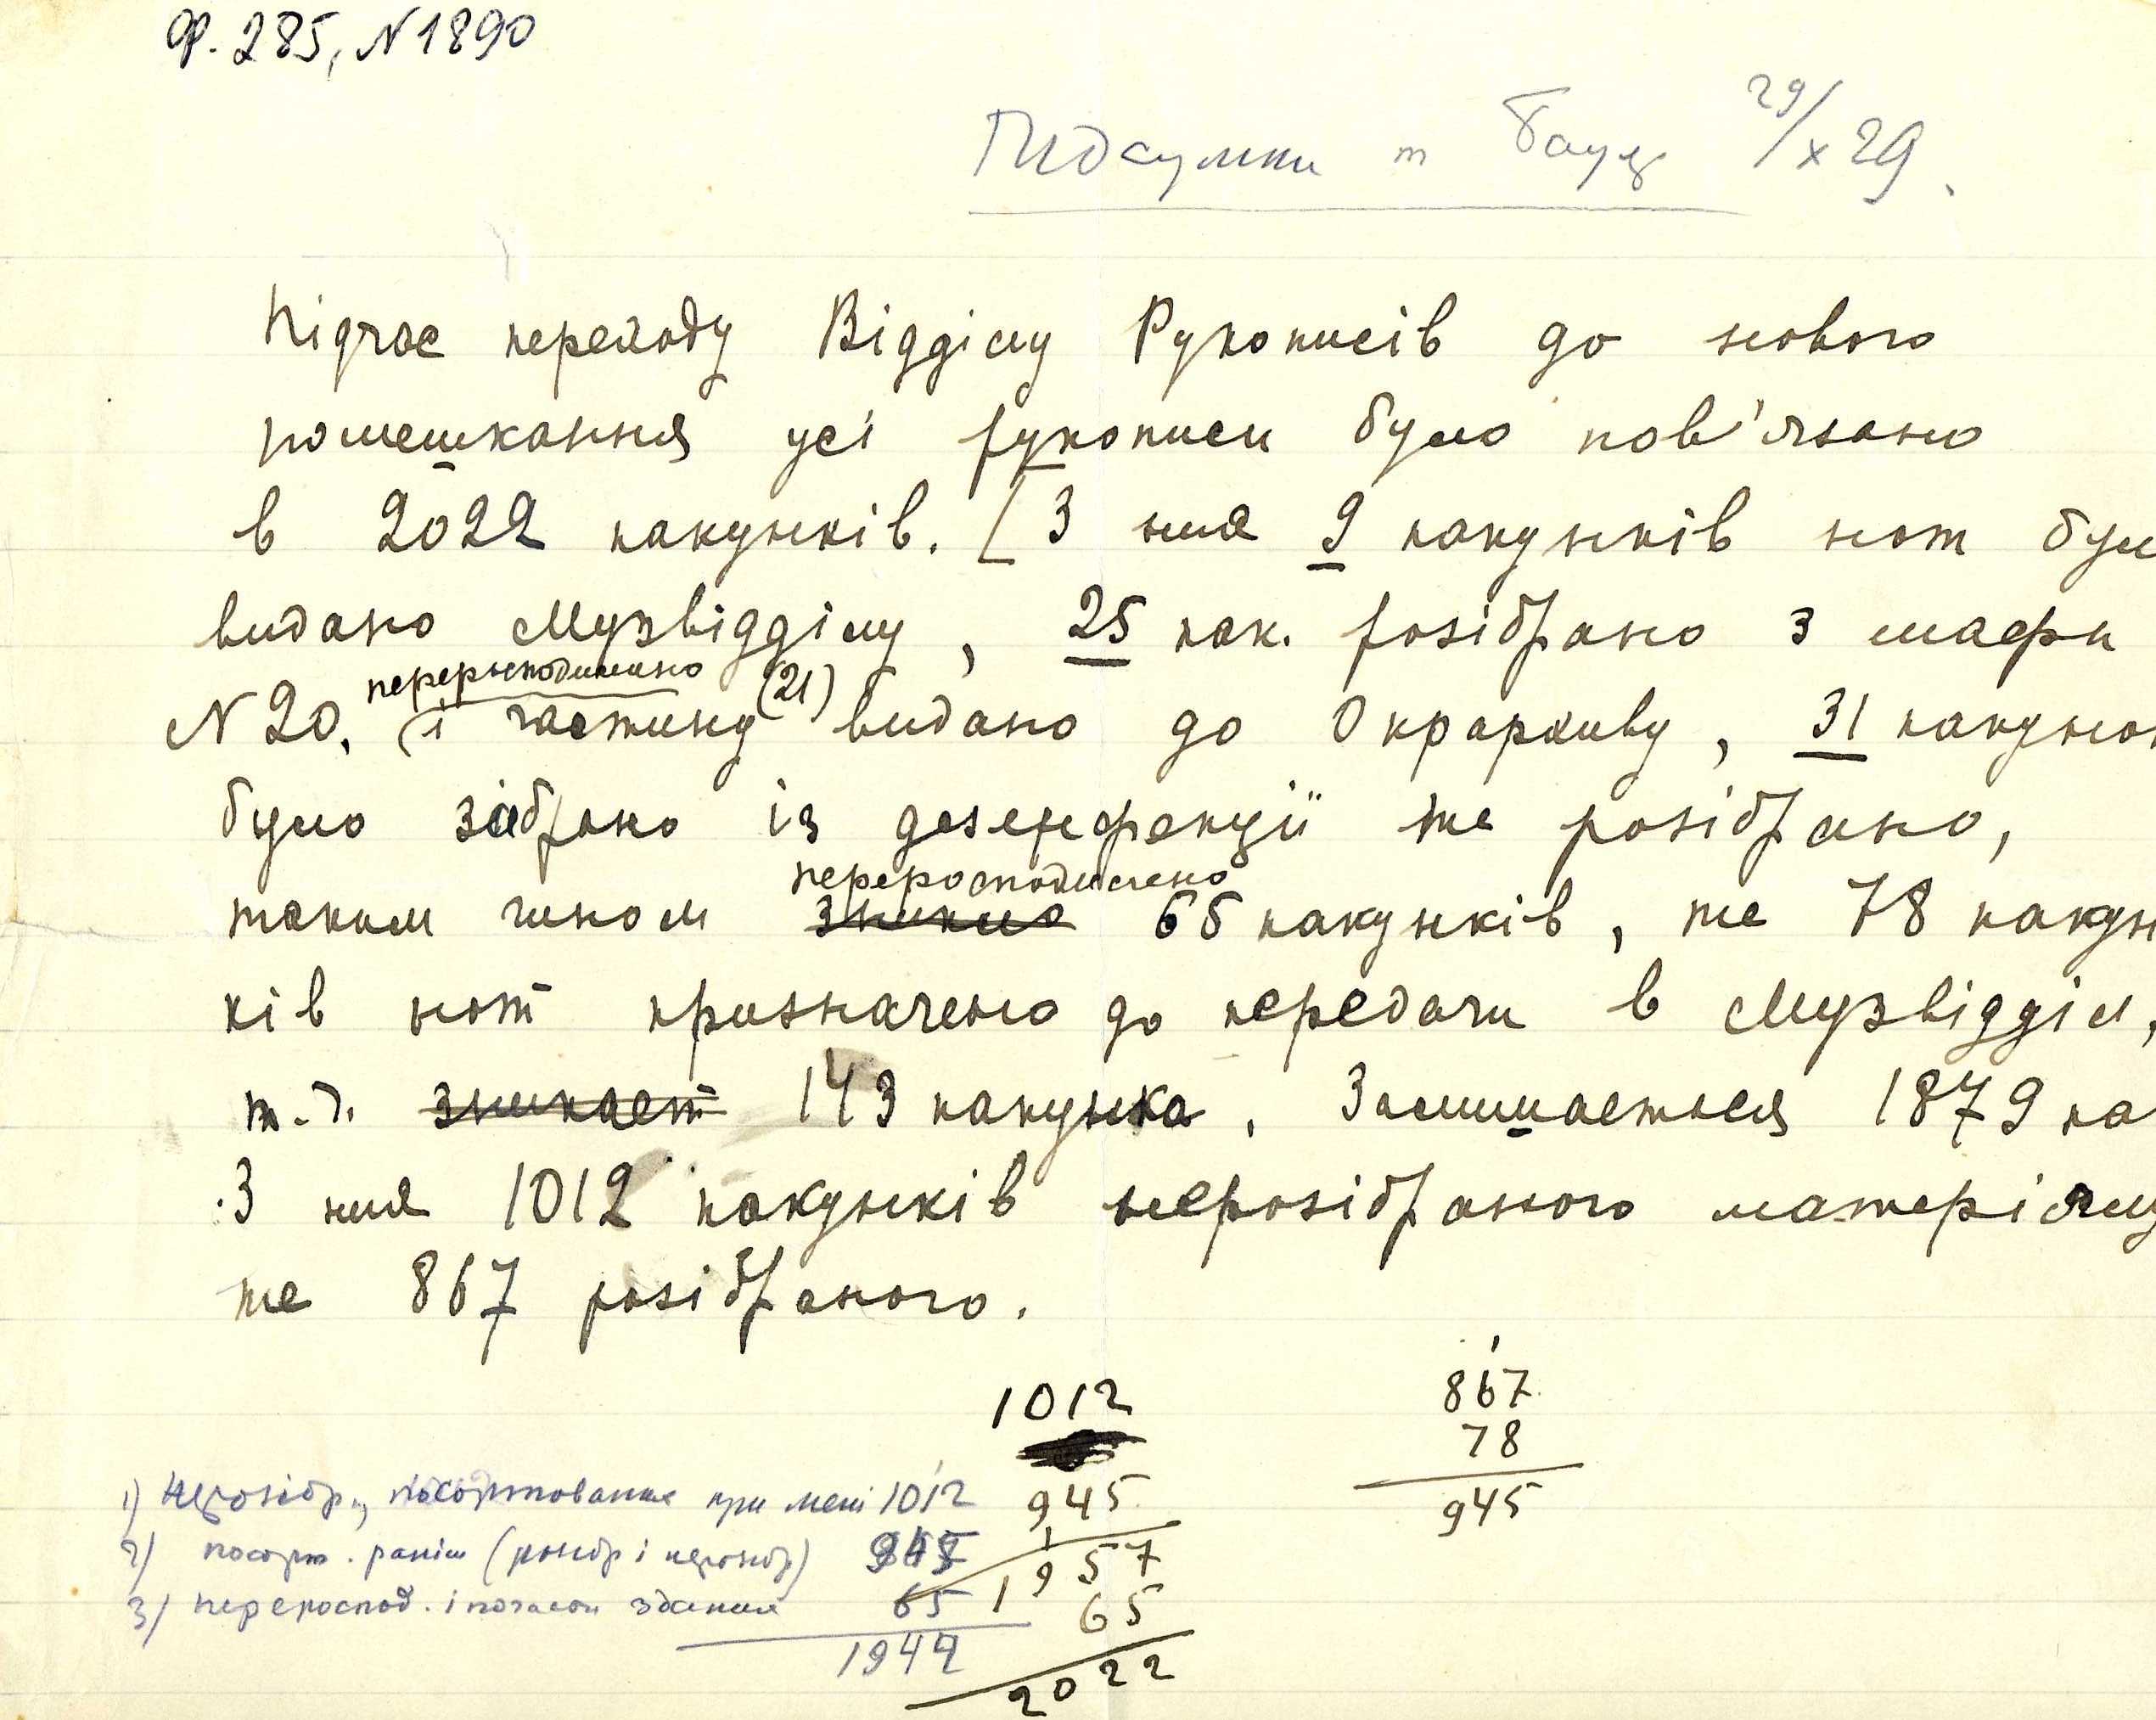 Ф. 285, N 1890
Підсумки т Бауер 29/X 29.
Підчас переходу Відділу Рукописів до нового
помешкання усі рукописи було пов'язано
в 2022 пакунків. [З них 9 пакунків нот бул
видано Музвідділу, 25 пак. розібрано з шафи
перерозподілено (21)
N 20, (і частину видано до Окрархиву, 31 пакунок
було забрано із дезенфекції та розібрано,
перерозподілено
таким чином зникло 65 пакунків, та 78 пакун
ків нот призначено до передачи в Музвідділ,
т.ч. зникает 143 пакунка. Залишається 1879 па
З них 1012 пакунків нерозібраного матеріялу
та 867 розібраного.
1012
945
1957
65
2022
867
78
945
1) Нерозібр., посортоване при мені 1012
2) посорт. раніш (розібр і нерозібр) 867
3) перерозпод. і почасти здання 65
1944